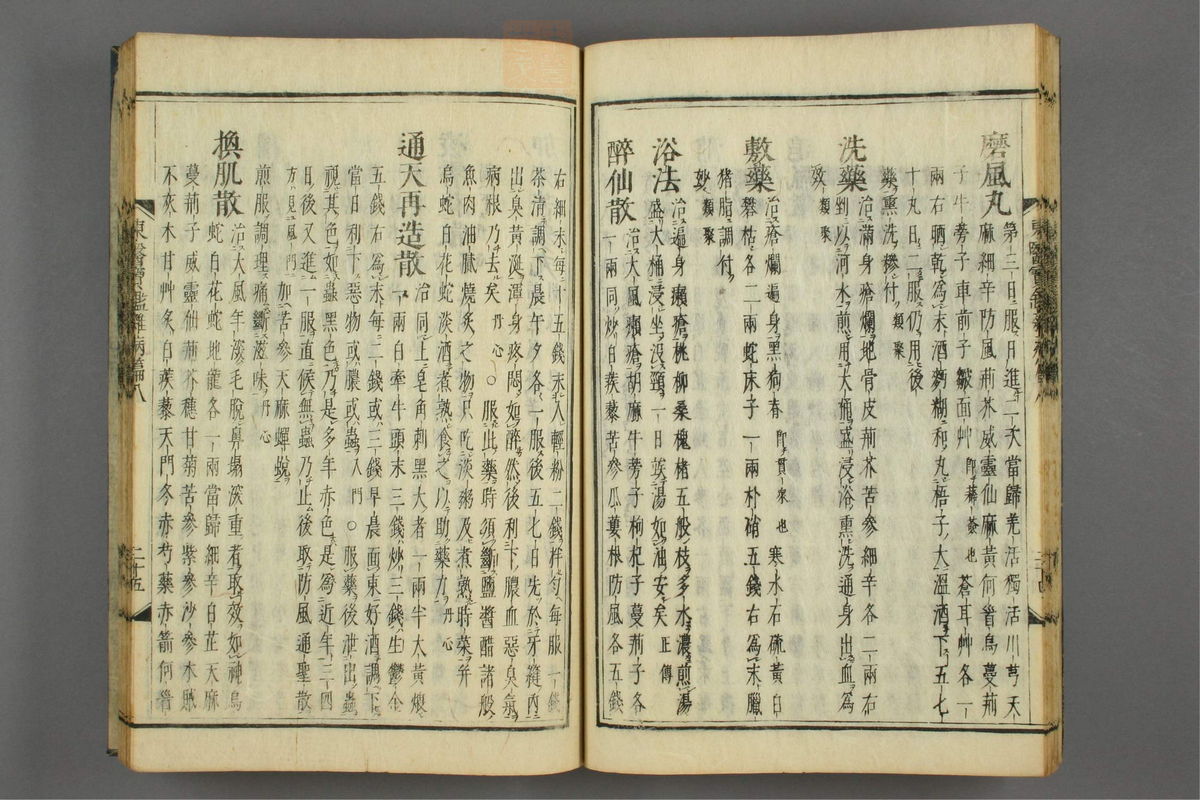 磨風丸
第三日服日進二大當歸羗活獨活川芎天
麻細辛防風荊芥威靈仙麻黃何首烏蔓荊
子牛蒡子車前子皺面艸卽豨薟也蒼耳艸各一
兩右晒乾爲末酒麪糊和丸梧子大溫酒下五七
十丸日二服仍用後
藥熏洗糝付類聚
洗藥
治滿身瘡爛地骨皮荊芥苦參細辛各二兩右
剉以河水煎用大桶盛浸浴熏洗通身出血爲
效類聚
敷藥
治瘡爛遍身黑狗脊卽貫衆也寒水石硫黃白
礬枯各二兩蛇床子一兩朴硝五錢右爲末臘
猪脂調付
妙類聚
浴法
治遍身癩瘡桃柳桑槐楮五般枝多水濃煎湯
盛大桶浸坐沒頸一日竢湯如油安矣正傳
醉仙散
治大風癩瘡胡麻牛蒡子枸杞子蔓荊子各
一兩同炒白蒺藜苦參瓜蔞根防風各五錢
右細末每十五錢末入輕粉二錢拌勻每服一錢
茶淸調下晨午夕各一服後五七日先於牙縫內
出臭黃涎渾身疼悶如醉然後利下膿血惡臭氣
病根乃去矣丹心○服此藥時須斷鹽醬醋諸般
魚肉油膩燒炙之物只吃淡粥及煮熟時菜幷
烏蛇白花蛇淡酒煮熟食之以助藥力丹心
通天再造散
治同上皂角刺黑大者一兩半大黃煨
一兩白牽牛頭末三錢炒三錢生鬱金
五錢右爲末每二錢或三錢早晨面東好酒調下
當日利下惡物或膿或蟲入門○服藥後泄出蟲
視其色如蟲黑色乃是多年赤色是爲近年三四
日後又進一服直候無蟲乃止後取防風通聖散
方見風門加苦參天麻蟬蛻
煎服調理痛斷滋味丹心
換肌散
治大風年深毛脫鼻塌深重者取效如神烏
蛇白花蛇地龍各一兩當歸細辛白芷天麻
蔓荊子威靈仙荊芥穗甘菊苦參紫參沙參木賊
不灰木甘艸炙白蒺藜天門冬赤芍藥赤箭何首
東醫寶鑑雜病篇八
二十五